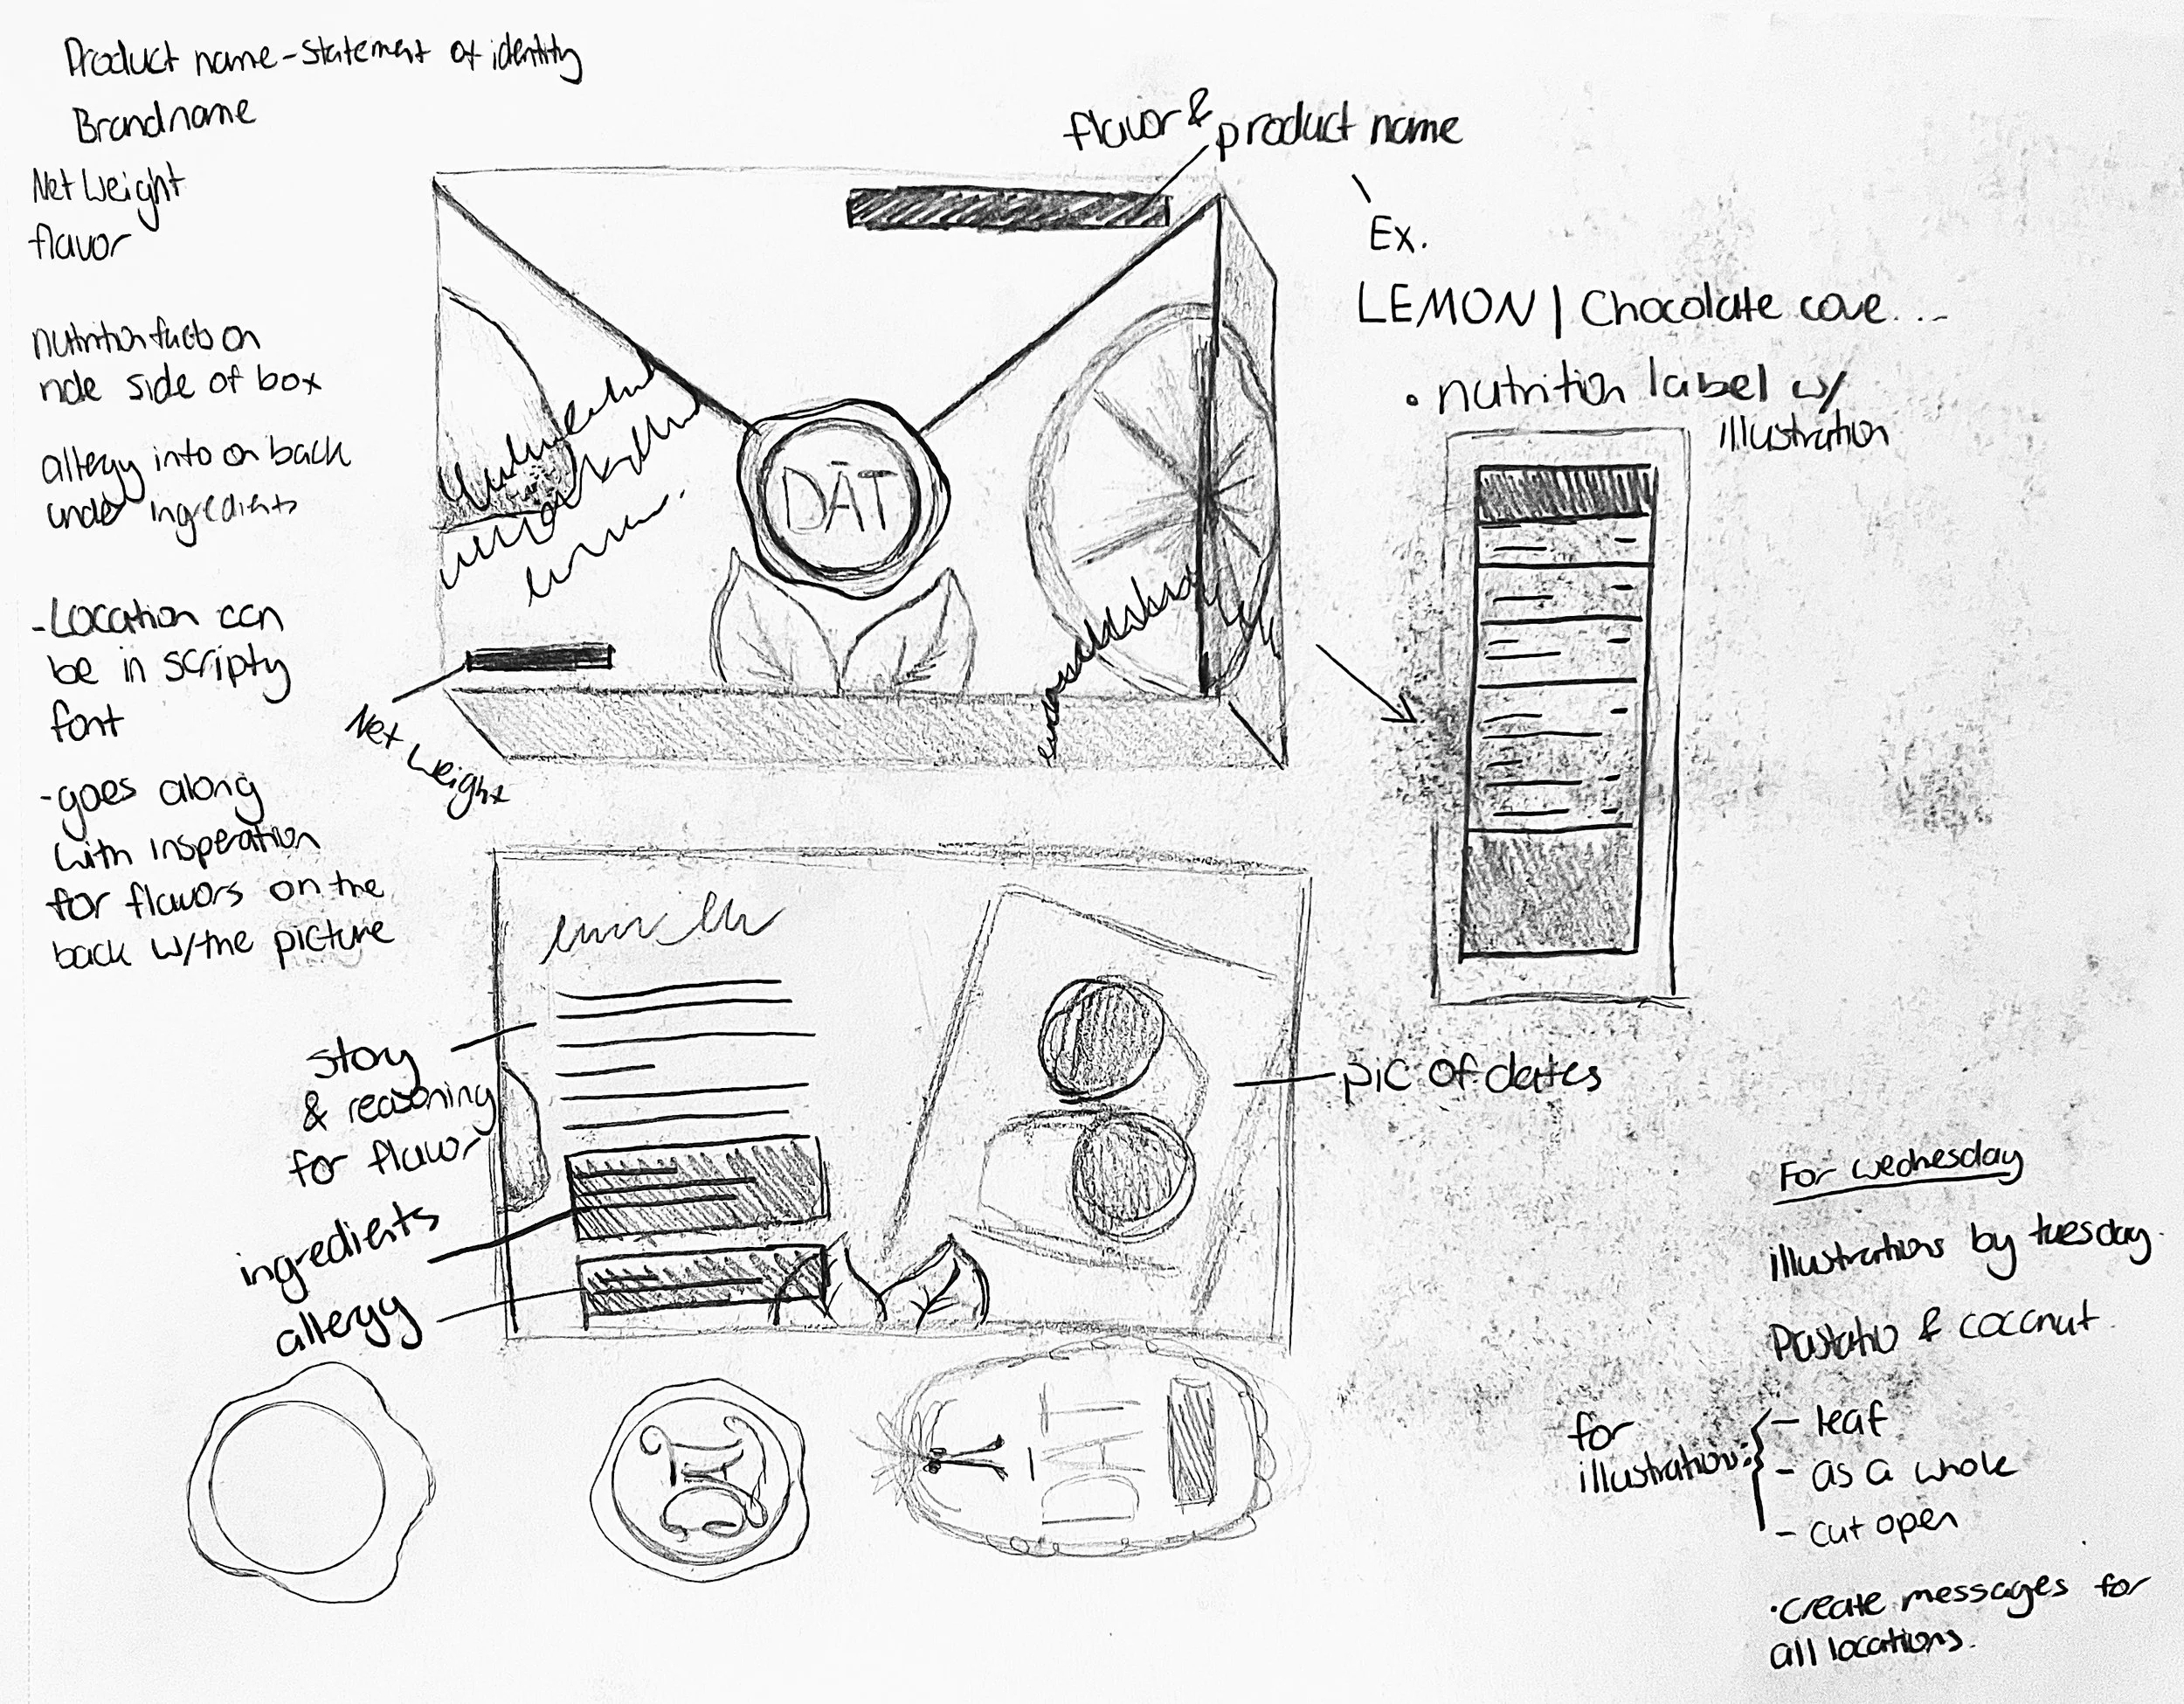 Product name - statement of identity
Brand name
Net Weight
flavor
nutrition facts on
side of box
allergy info on back
under ingredients
- Location can
be in scripty
font
- goes along
with insperation
for flavors on the
back w/the picture
flavor & product name
Ex.
LEMON | Chocolate cove...
• nutrition label w/
illustration
DĀT
Net Weight
story
& reasoning
for flavor
ingredients
allergy
pic of dates
DĀT
DĀT
For wednesday
illustrations by tuesday.
& coconut.
for
illustration:
- leaf
- as a whole
- cut open
• create messages for
all locations.